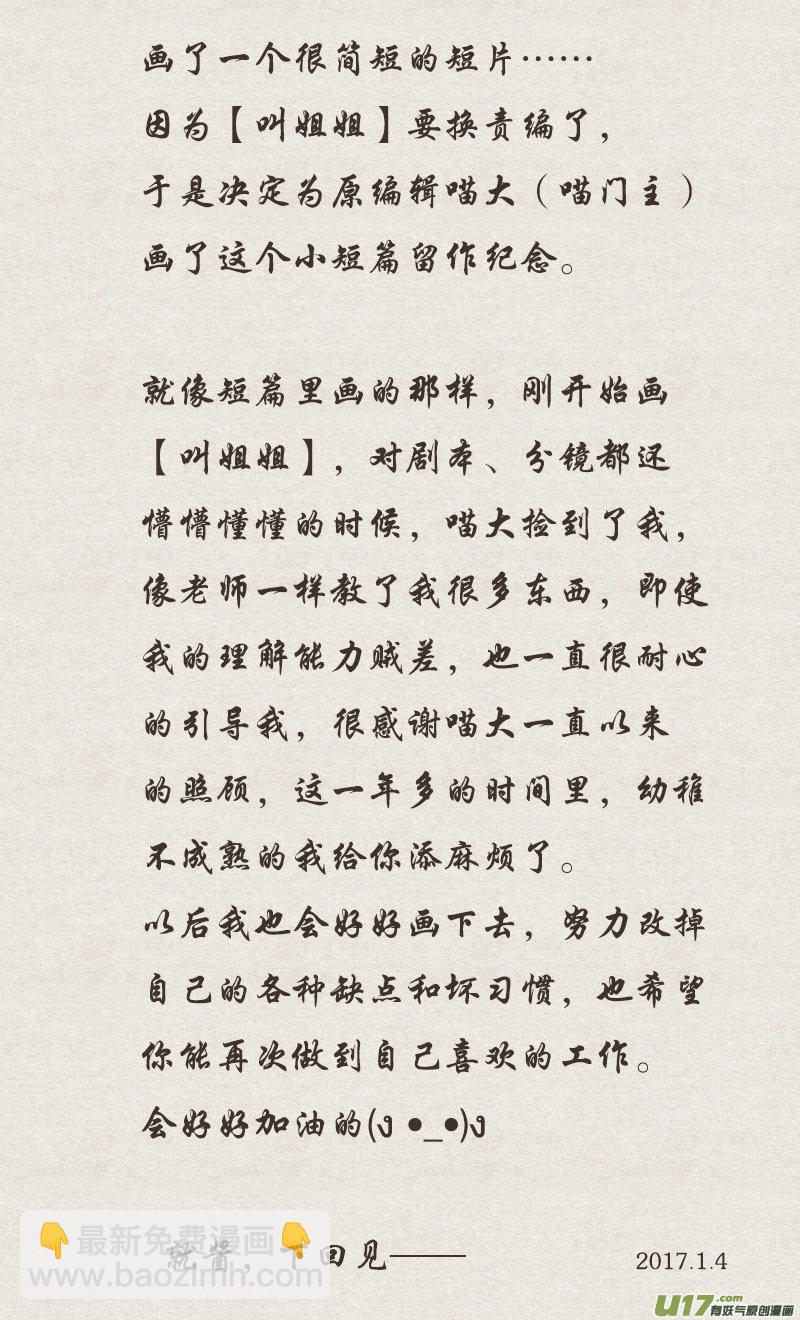 画了一个很简短的短片……
因为【叫姐姐】要换责编了，
于是决定为原编辑喵大（喵门主）
画了这个小短篇留作纪念。
就像短篇里画的那样，刚开始画
【叫姐姐】，对剧本、分镜都还
懵懵懂懂的时候，喵大捡到了我，
像老师一样教了我很多东西，即使
我的理解能力贼差，也一直很耐心
的引导我，很感谢喵大一直以来
的照顾，这一年多的时间里，幼稚
不成熟的我给你添麻烦了。
以后我也会好好画下去，努力改掉
自己的各种缺点和坏习惯，也希望
你能再次做到自己喜欢的工作。
会好好加油的(ง •_•)ง
就酱，下回见——
👇最新免费漫画👇
www.baozimh.com
2017.1.4
U17.com
有妖气原创漫画